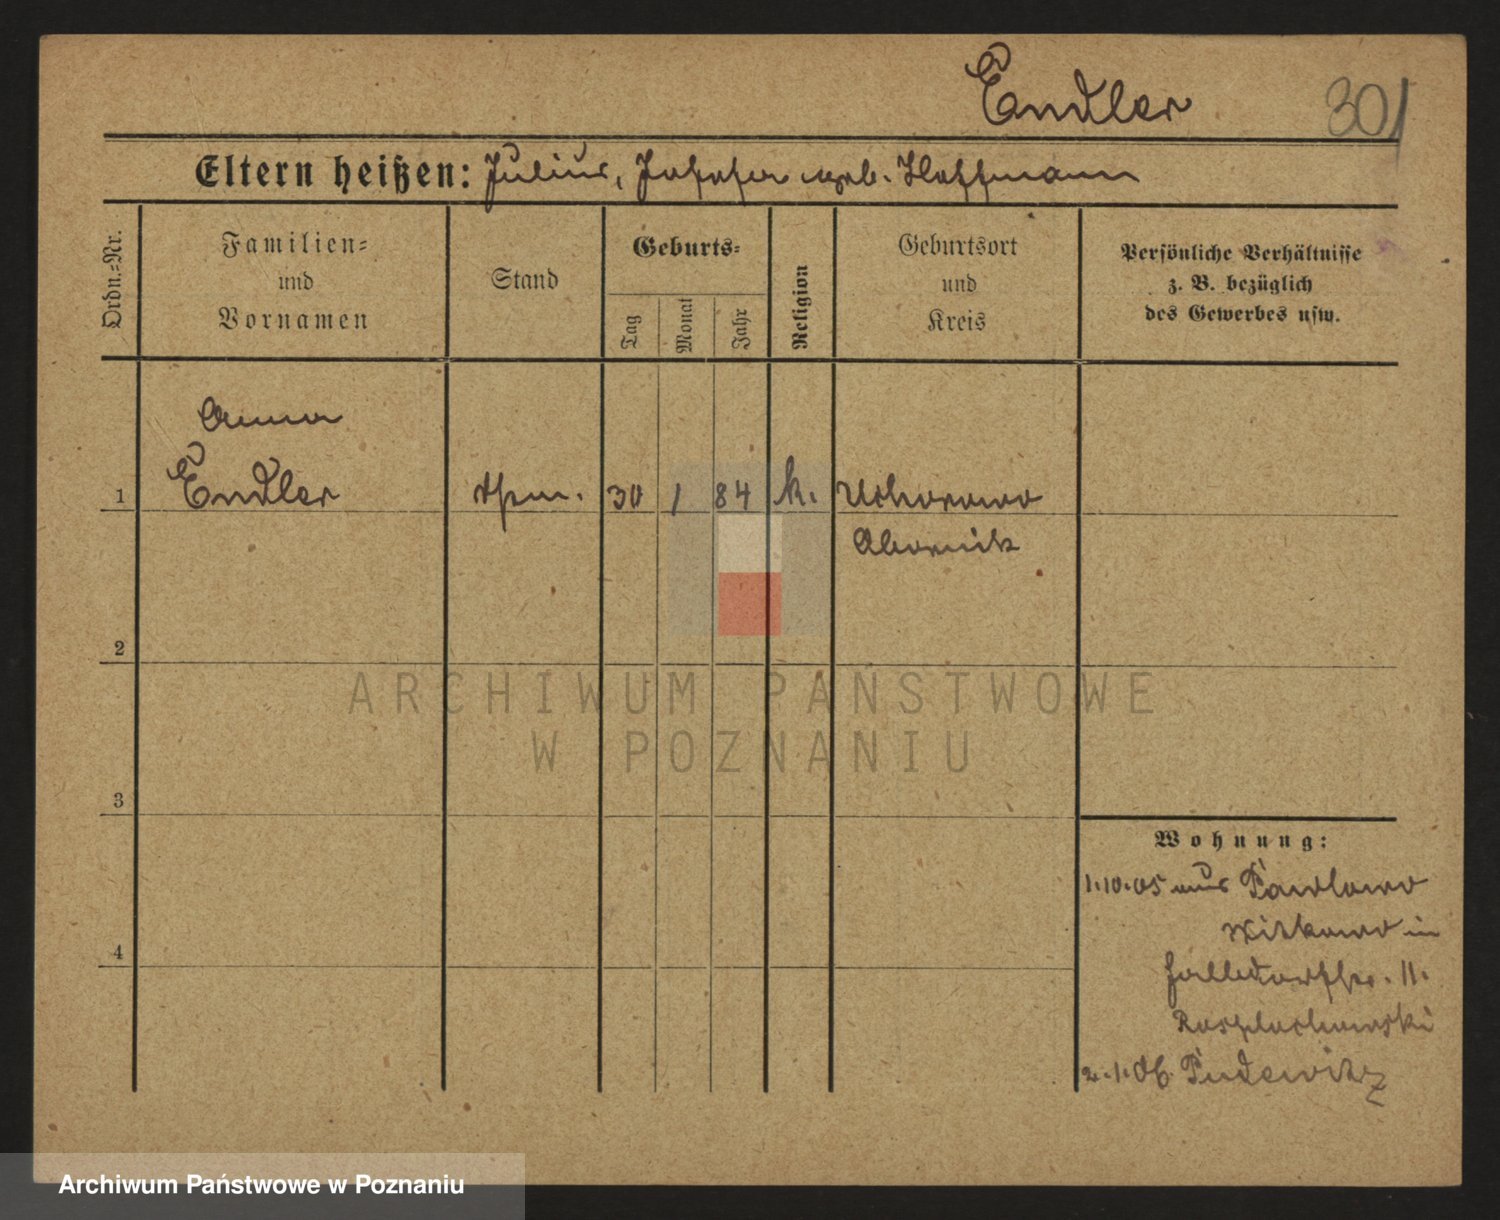 Endler 301
Eltern heißen: Julius, Josefa geb. Hoffmann
Ordn.=Nr.
Familien=
und
Vornamen
Stand
Geburts=
Tag
Monat
Jahr
Religion
Geburtsort
und
Kreis
Persönliche Verhältnisse
z. B. bezüglich
des Gewerbes usw.
Anna
1 Endler 30 1 84 k. Uchorowo
Obornik
2
ARCHIWUM PAŃSTWOWE
W POZNANIU
3
Wohnung:
1.10.05 aus Pawlowo
Witkowo in
11.
4
2.1.06. Pudewitz
Archiwum Państwowe w Poznaniu